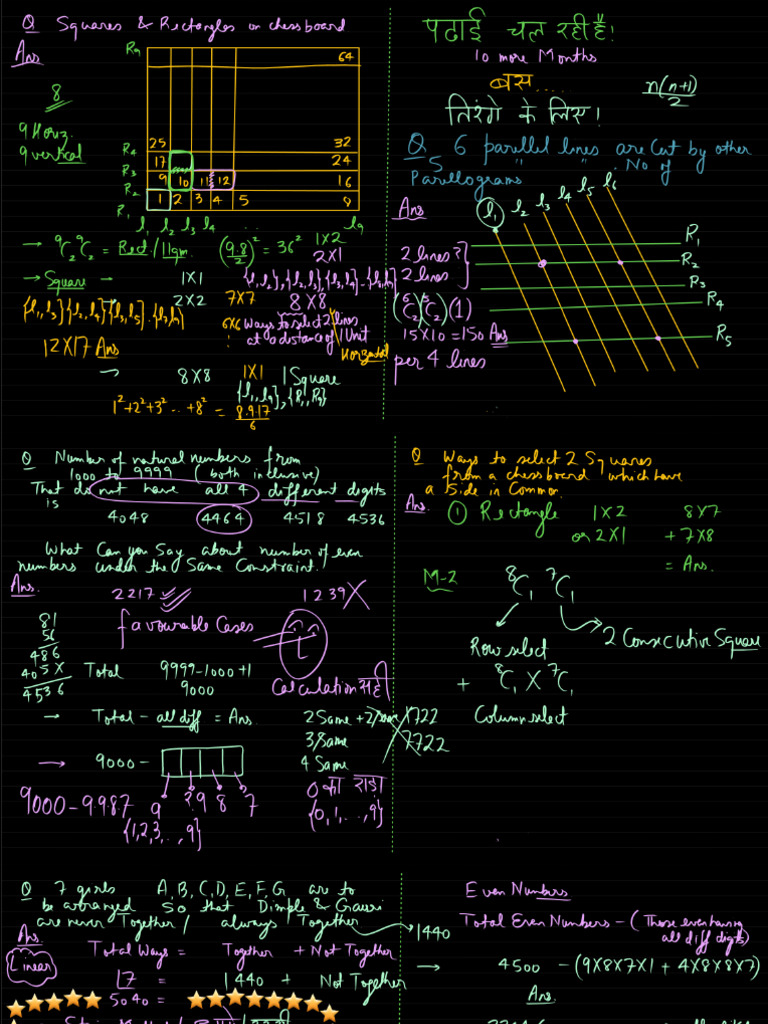 Q Squares & Rectangles on chessboard
Ans
R9
64
8
9 Horiz.
9 vertical
25 32
R4
17 24
R3
9 10 11 12 16
R2
1 2 3 4 5 8
R1
l1 l2 l3 l4 ... l9
→ ⁹C₂ ⁹C₂ = Rect./llgm. (9.8/2)² = 36² 1X2
2X1
→ Square → 1X1 {l1,l2},{l2,l3},{l3,l4}..{l8,l9}
2X2 7X7 8X8
{l1,l3}{l2,l4}{l3,l5}..{l7,l9}
6X6 Ways to select 2 lines
at a distance of 1 Unit
Horizontal
12X17 Ans
→ 8X8 1X1 1 Square
{l1,l9},{R1,R9}
1²+2²+3²...+8² = 8.9.17/6
पढाई चल रही है!
10 more Months
बस ....
n(n+1)/2
तिरंगे के लिए!
Q 6 parallel lines are Cut by other
5 " " . No of
Parallograms
Ans
l1 l2 l3 l4 l5 l6
R1
2 lines?
R2
2 lines
R3
(⁶C₂)(⁵C₂)(1)
R4
15X10=150 Ans
R5
per 4 lines
Q Number of natural numbers from
1000 to 9999 (both inclusive)
That do not have all 4 different digits
is
4048 4464 4518 4536
What Can you Say about number of even
numbers under the Same Constraint.
Ans.
2217 1239 X
favourable Cases
81
56
486
405X
4536
Total 9999-1000+1
9000
Calculation नही
→ Total - all diff = Ans. 2 Same + 2 Same 1722
3 Same 7722
4 Same
→ 9000-
9000-9.9.8.7 9 9 8 7
{1,2,3,..,9}
0 का
{0,1,...,9}
Q Ways to select 2 Squares
from a chessboard which have
a Side in Common.
Ans.
① Rectangle 1X2 8X7
or 2X1 + 7X8
= Ans.
M-2 ⁸C₁ ⁷C₁
Row select
2 Consecutive Square
+ ⁸C₁ X ⁷C₁
Column select
Q 7 girls A,B,C,D,E,F,G are to
be arranged so that Dimple & Gauri
are never Together / always Together
1440
Ans.
Linear
Total Ways = Together + Not Together
⌊7 = 1440 + Not Together
5040 =
Even Numbers
Total Even Numbers - (Those even having
all diff digits)
→ 4500 - (9X8X7X1 + 4X8X8X7)
Ans.